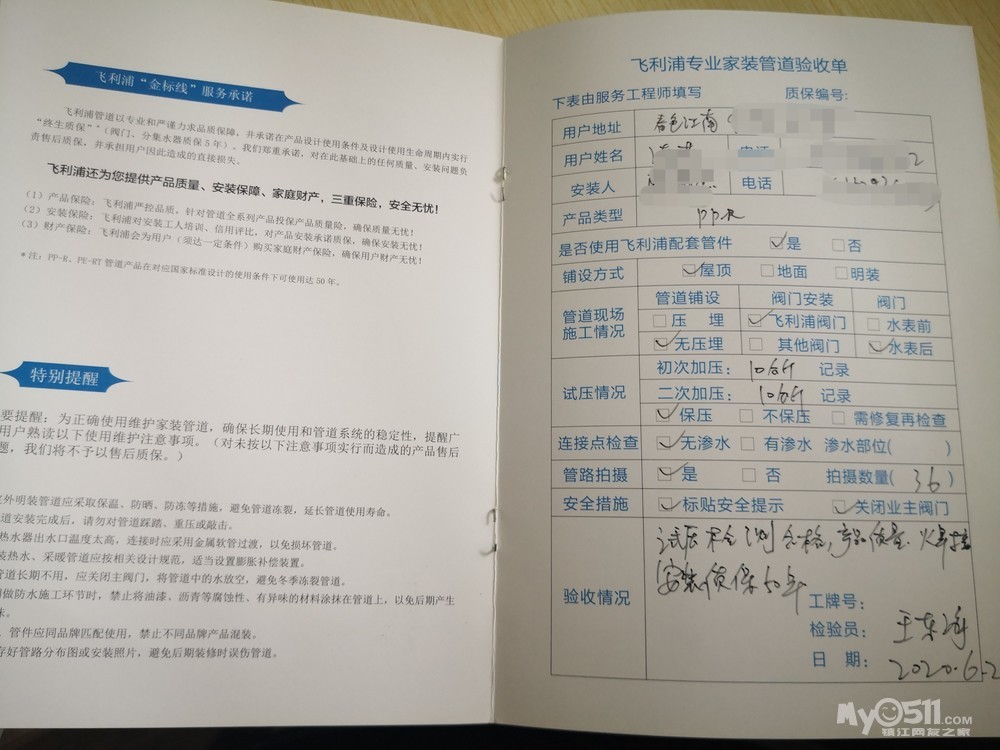 飞利浦“金标线”服务承诺
飞利浦管道以专业和严谨力求品质保障，并承诺在产品设计使用条件及设计使用生命周期内实行
“终生质保”*（阀门、分集水器质保5年），我们郑重承诺，对在此基础上的任何质量、安装问题负
责售后质保，并承担用户因此造成的直接损失。
飞利浦还为您提供产品质量、安装保障、家庭财产，三重保险，安全无忧！
（1）产品保险：飞利浦严控品质、针对管道全系列产品投保产品质量险，确保质量无忧！
（2）安装保险：飞利浦对安装工人培训、信用评比，对产品安装承诺质保，确保安装无忧！
（3）财产保险：飞利浦会为用户（须达一定条件）购买家庭财产保险，确保用户财产无忧！
*注：PP-R、PE-RT管道产品在对应国家标准设计的使用条件下可使用达50年。
特别提醒
要提醒：为正确使用维护家装管道，确保长期使用和管道系统的稳定性，提醒广
用户熟读以下使用维护注意事项。（对未按以下注意事项实行而造成的产品售后
题，我们将不予以售后质保。）
外明装管道应采取保温、防晒、防冻等措施，避免管道冻裂，延长管道使用寿命。
道安装完成后，请勿对管道踩踏、重压或敲击。
热水器出水口温度太高，连接时应采用金属软管过渡，以免损坏管道。
装热水、采暖管道应按相关设计规范，适当设置膨胀补偿装置。
管道长期不用，应关闭主阀门，将管道中的水放空，避免冬季冻裂管道。
做防水施工环节时，禁止将油漆、沥青等腐蚀性、有异味的材料涂抹在管道上，以免后期产生
味。
、管件应同品牌匹配使用，禁止不同品牌产品混装。
存好管路分布图或安装照片，避免后期装修时误伤管道。
飞利浦专业家装管道验收单
下表由服务工程师填写 质保编号:
用户地址 春色江南(
用户姓名 电话 2
安装人 电话
产品类型 PP-R
是否使用飞利浦配套管件 ☑是 □否
铺设方式 ☑屋顶 □地面 □明装
管道现场施工情况 管道铺设 阀门安装 阀门
□压 埋 ☑飞利浦阀门 □水表前
☑无压埋 □其他阀门 ☑水表后
试压情况 初次加压： 10公斤 记录
二次加压： 10公斤 记录
☑保压 □不保压 □需修复再检查
连接点检查 ☑无渗水 □有渗水 渗水部位( )
管路拍摄 ☑是 □否 拍摄数量( 36 )
安全措施 ☑标贴安全提示 ☑关闭业主阀门
试压检测合格，产品质量、火焊接
验收情况 安装质保50年
工牌号：
检验员： 王东
日 期： 2020.6.2
My0511.COM
镇江网友之家